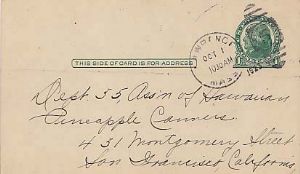 THIS SIDE OF CARD IS FOR ADDRESS
OCT 1
10 30 AM
MASS
Dept. 55, Assn of Hawaiian
Pineapple Canners
451 Montgomery Street
San Francisco California